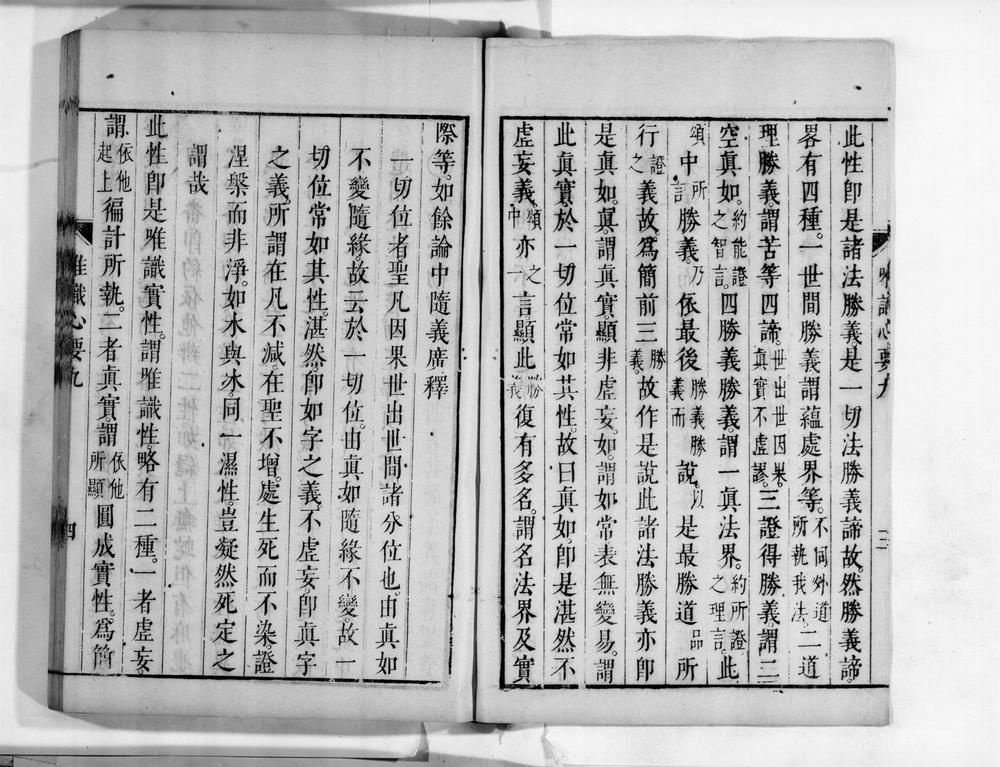 此性卽是諸法勝義是一切法勝義諦故。然勝義諦。
畧有四種。一世間勝義謂蘊處界等。不同外道所執我法。二道
理勝義。謂苦等四諦。世出世因果。眞實不虛謬。三證得勝義。謂二
空眞如。約能證之智言。四勝義勝義。謂一眞法界。約所證之理言。此
頌中所言勝義。乃依最後勝義勝義而說。以是最勝道品所
行證之義故。爲簡前三勝義。故作是說此諸法勝義亦卽
是眞如。眞。謂眞實。顯非虛妄。如。謂如常表無變易。謂
此眞實。於一切位常如其性。故曰眞如。卽是湛然不
虛妄義。頌中亦之一言。顯此勝義復有多名。謂名法界及實
唯識心要九
三
際等。如餘論中隨義廣釋
一切位者聖凡因果世出世間諸分位也。由眞如
不變隨緣。故云於一切位。由眞如隨緣不變。故一
切位常如其性。湛然。卽如字之義。不虛妄。卽眞字
之義。所謂在凡不減。在聖不增。處生死而不染。證
涅槃而非淨。如水與冰。同一濕性。豈凝然死定之
謂哉
此性卽是唯識實性。謂唯識性。略有二種。一者虛妄。
謂依他起上徧計所執。二者眞實。謂依他所顯圓成實性。爲簡
唯識心要九
四